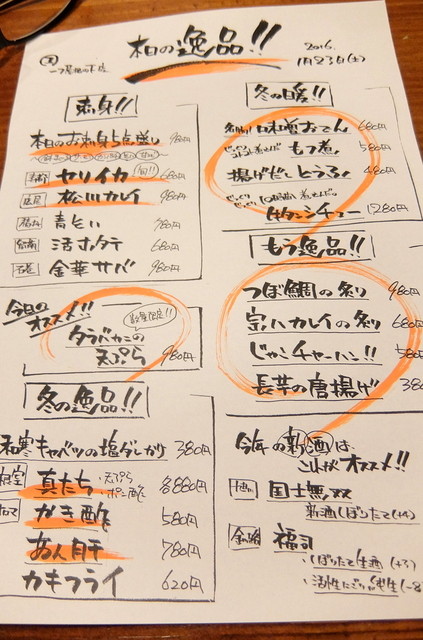 本日の逸品!!
2016.
1月23日(土)
刺身!!
本日のお刺身5点盛り 980円
ヤリイカ 旬!! 680円
松川カレイ 980円
青とい 980円
活ホタテ 680円
金華サバ 980円
今日のオススメ!!
数量限定!!
タラバカニの
天ぷら 980円
冬の逸品!!
和寒キャベツの塩こんぶかけ 380円
根室 真たち ・天ぷら ・ポン酢 各880円
かき酢 580円
あん肝 780円
カキフライ 620円
冬の暖!!
味噌おでん 680円
もつ煮 580円
揚げだしとうふ 480円
牛タンシチュー 1280円
もう逸品!!
つぼ鯛の炙り 980円
宗八カレイの炙り 680円
じゃこチャーハン!! 580
長芋の唐揚げ 380
今年の新酒は、
これがオススメ!!
国士無双
新酒しぼりたて(+4)
釧路 福司
・しぼりたて生酒 (+3)
・活性にごり生 (-8